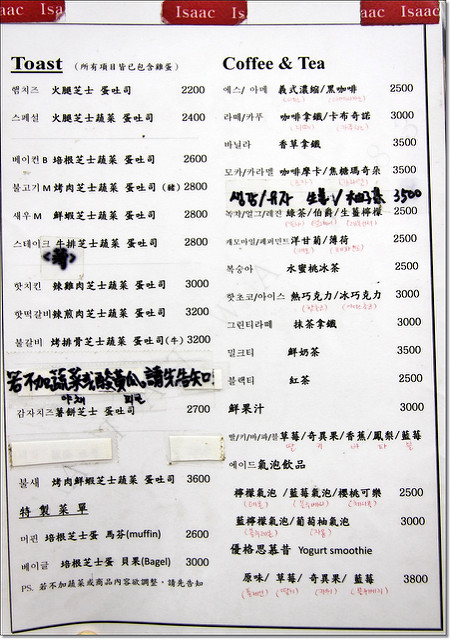 aac Isaa
Isaac Is
aac Isaac
Toast (所有項目皆已包含雞蛋)
햄치즈 火腿芝士 蛋吐司 2200
스페셜 火腿芝士蔬菜 蛋吐司 2400
베이컨 B 培根芝士蔬菜 蛋吐司 2600
불고기 M 烤肉芝士蔬菜 蛋吐司 (豬) 2800
새우 M 鮮蝦芝士蔬菜 蛋吐司 2800
스테이크 牛排芝士蔬菜 蛋吐司 2800
핫치킨 辣雞肉芝士蔬菜 蛋吐司 3000
핫떡갈비 辣煎肉芝士蔬菜 蛋吐司 3200
불갈비 烤排骨芝士蔬菜 蛋吐司(牛) 3200
若不加蔬菜或酸黃瓜,請先告知!
야채 피클
감자치즈 薯餅芝士 蛋吐司 2700
불새 烤肉鮮蝦芝士蔬菜 蛋吐司 3600
特製菜單
머핀 培根芝士蛋 馬芬(muffin) 2600
베이글 培根芝士蛋 貝果(Bagel) 3000
PS. 若不加蔬菜或商品內容欲調整，請先告知
Coffee & Tea
에스/ 아메 義式濃縮/黑咖啡 2500
라떼/카푸 咖啡拿鐵/卡布奇諾 3000
바닐라 香草拿鐵 3500
모카/카라멜 咖啡摩卡/焦糖瑪奇朵 3500
생강/유자 生薑/柚子茶 3500
녹차/얼그/레진 綠茶/伯爵/生薑檸檬 2500
캐모마일/페퍼민트 洋甘菊/薄荷 2500
복숭아 水蜜桃冰茶 2500
핫초코/아이스 熱巧克力/冰巧克力 3000
그린티라떼 抹茶拿鐵 3500
밀크티 鮮奶茶 3500
블랙티 紅茶 2500
鮮果汁 3000
딸/키/바/파/블 草莓/奇異果/香蕉/鳳梨/藍莓
딸 키 바 파 블
에이드 氣泡飲品
檸檬氣泡 /藍莓氣泡/櫻桃可樂 2500
藍檸檬氣泡/葡萄柚氣泡 3000
優格思慕昔 Yogurt smoothie
原味/ 草莓/ 奇異果/ 藍莓 3800